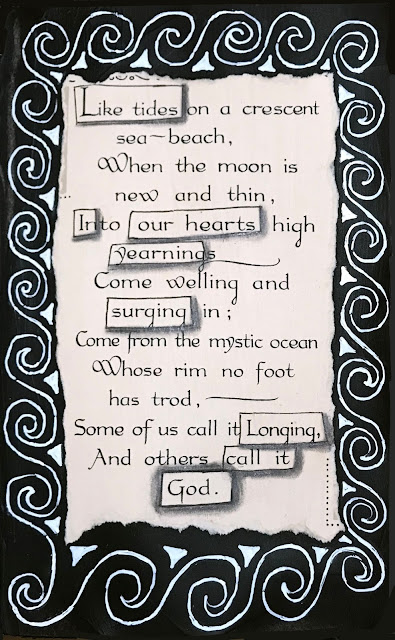 Like tides on a crescent
sea-beach,
When the moon is
new and thin,
Into our hearts high
yearnings
Come welling and
surging in;
Come from the mystic ocean
Whose rim no foot
has trod,—
Some of us call it Longing,
And others call it
God.